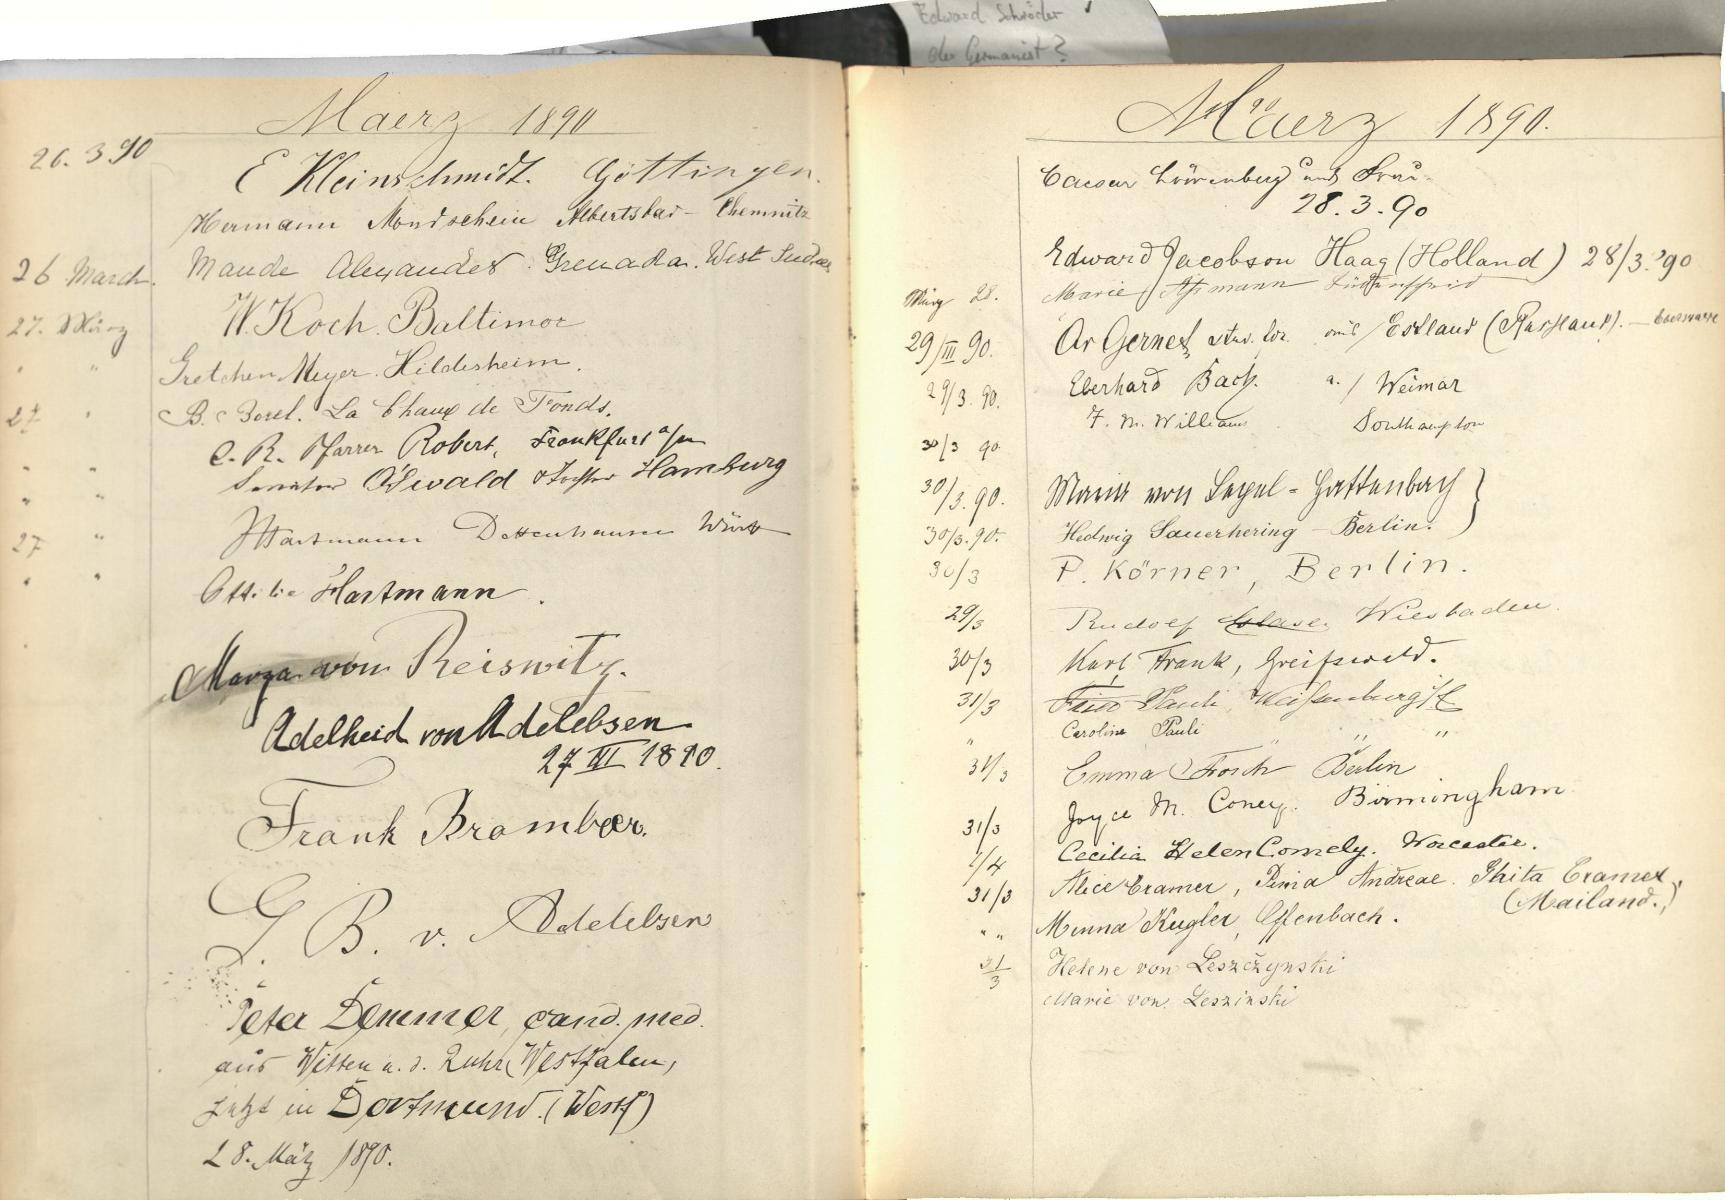 Edward Schröder
der Germanist?
Maerz 1890
26. 3. 90
E Kleinschmidt. Göttingen.
Hermann Mondschein Albertsbad - Chemnitz
26 March. Maude Alexander. Grenada. West Indies
27. März W. Koch. Baltimor
" " Gretchen Meyer. Hildesheim.
27 " B. Borel. La Chaux de Fonds.
" " C. R. Pfarrer Robert, Frankfurt a/m
" " Senator Oswald & Tochter Hamburg
27 " Hartmann Dettenhausen Württ
" " Ottilie Hartmann.
Marga von Reiswitz.
Adelheid von Adelebsen
27 III 1890.
Frank Brambeer.
G. B. v. Adelebsen
Peter Demmer, cand. med.
aus Witten a. d. Ruhr (Westfalen,
jetzt in Dortmund. (Westf)
28. März 1890.
Maerz 1890.
Caesar Löwenberg und Frau
28. 3. 90
Edward Jacobson Haag (Holland) 28/3. '90
März 28. Marie Assmann Lüdenscheid
29/III 90. Gernet, aus Estland (Russland).
29/3. 90. Eberhard Bach. a. / Weimar
30/3 90 F. M. Williams Southampton
30/3. 90. von Hattenbach }
30/3. 90. Hedwig Sauerhering - Berlin.
30/3 P. Körner, Berlin.
29/3 Rudolf Wiesbaden.
30/3 Karl Frank, Greifswald.
31/3 Pauli Weißenburg
" Caroline Pauli " " "
31/3 Emma Frosch Berlin
31/3 Joyce M. Coney. Birmingham
1/4 Cecilia Helen Comely. Worcester.
31/3 Alice Cramer, Pina Andreae. Ghita Cramer,
(Mailand.)
" " Minna Kugler, Offenbach.
31/3 Helene von Leszczynski
Marie von Leszinski